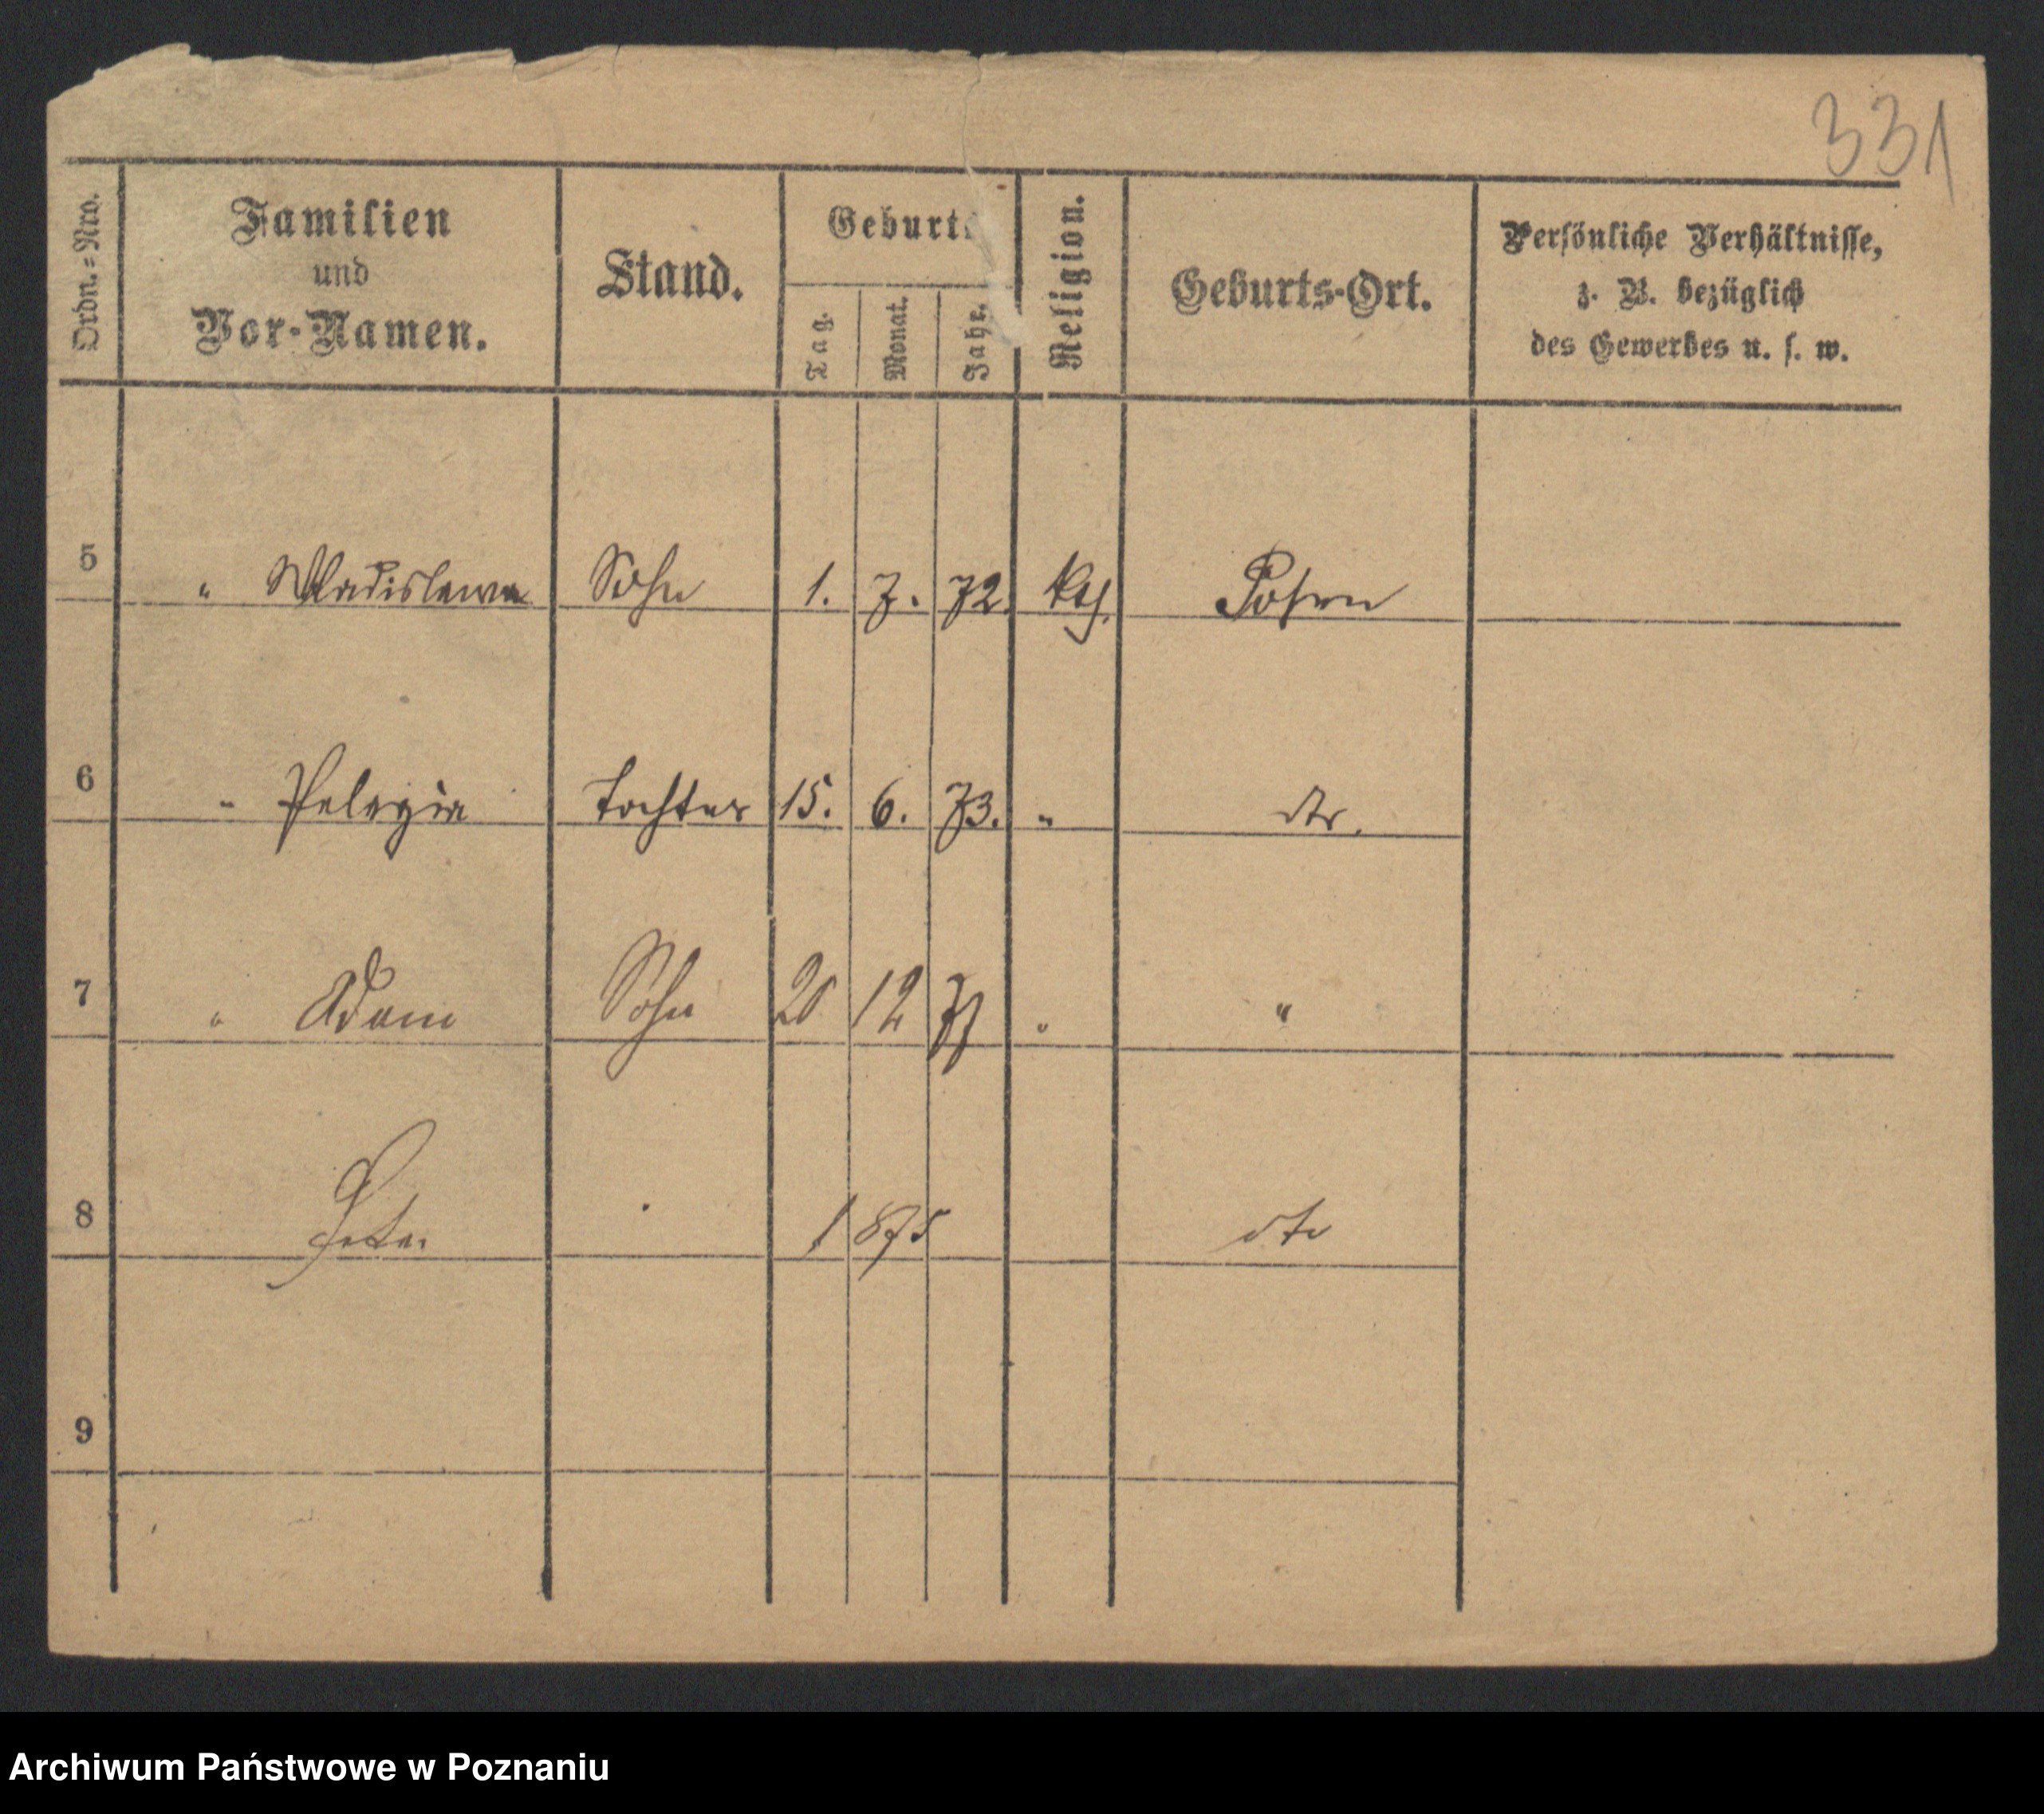 331
Ordn.-Nro.
Familien
und
Vor-Namen.
Stand.
Geburts
Tag.
Monat.
Jahr.
Religion.
Geburts-Ort.
Persönliche Verhältnisse,
z. B. bezüglich
des Gewerbes u. s. w.
5 " Wladislawa Sohn 1. 7. 72. kth. Posen
6 " Pelagia Tochter 15. 6. 73. " dto.
7 " Adam Sohn 20 12 "
8 Peter 1875 dto
9
Archiwum Państwowe w Poznaniu